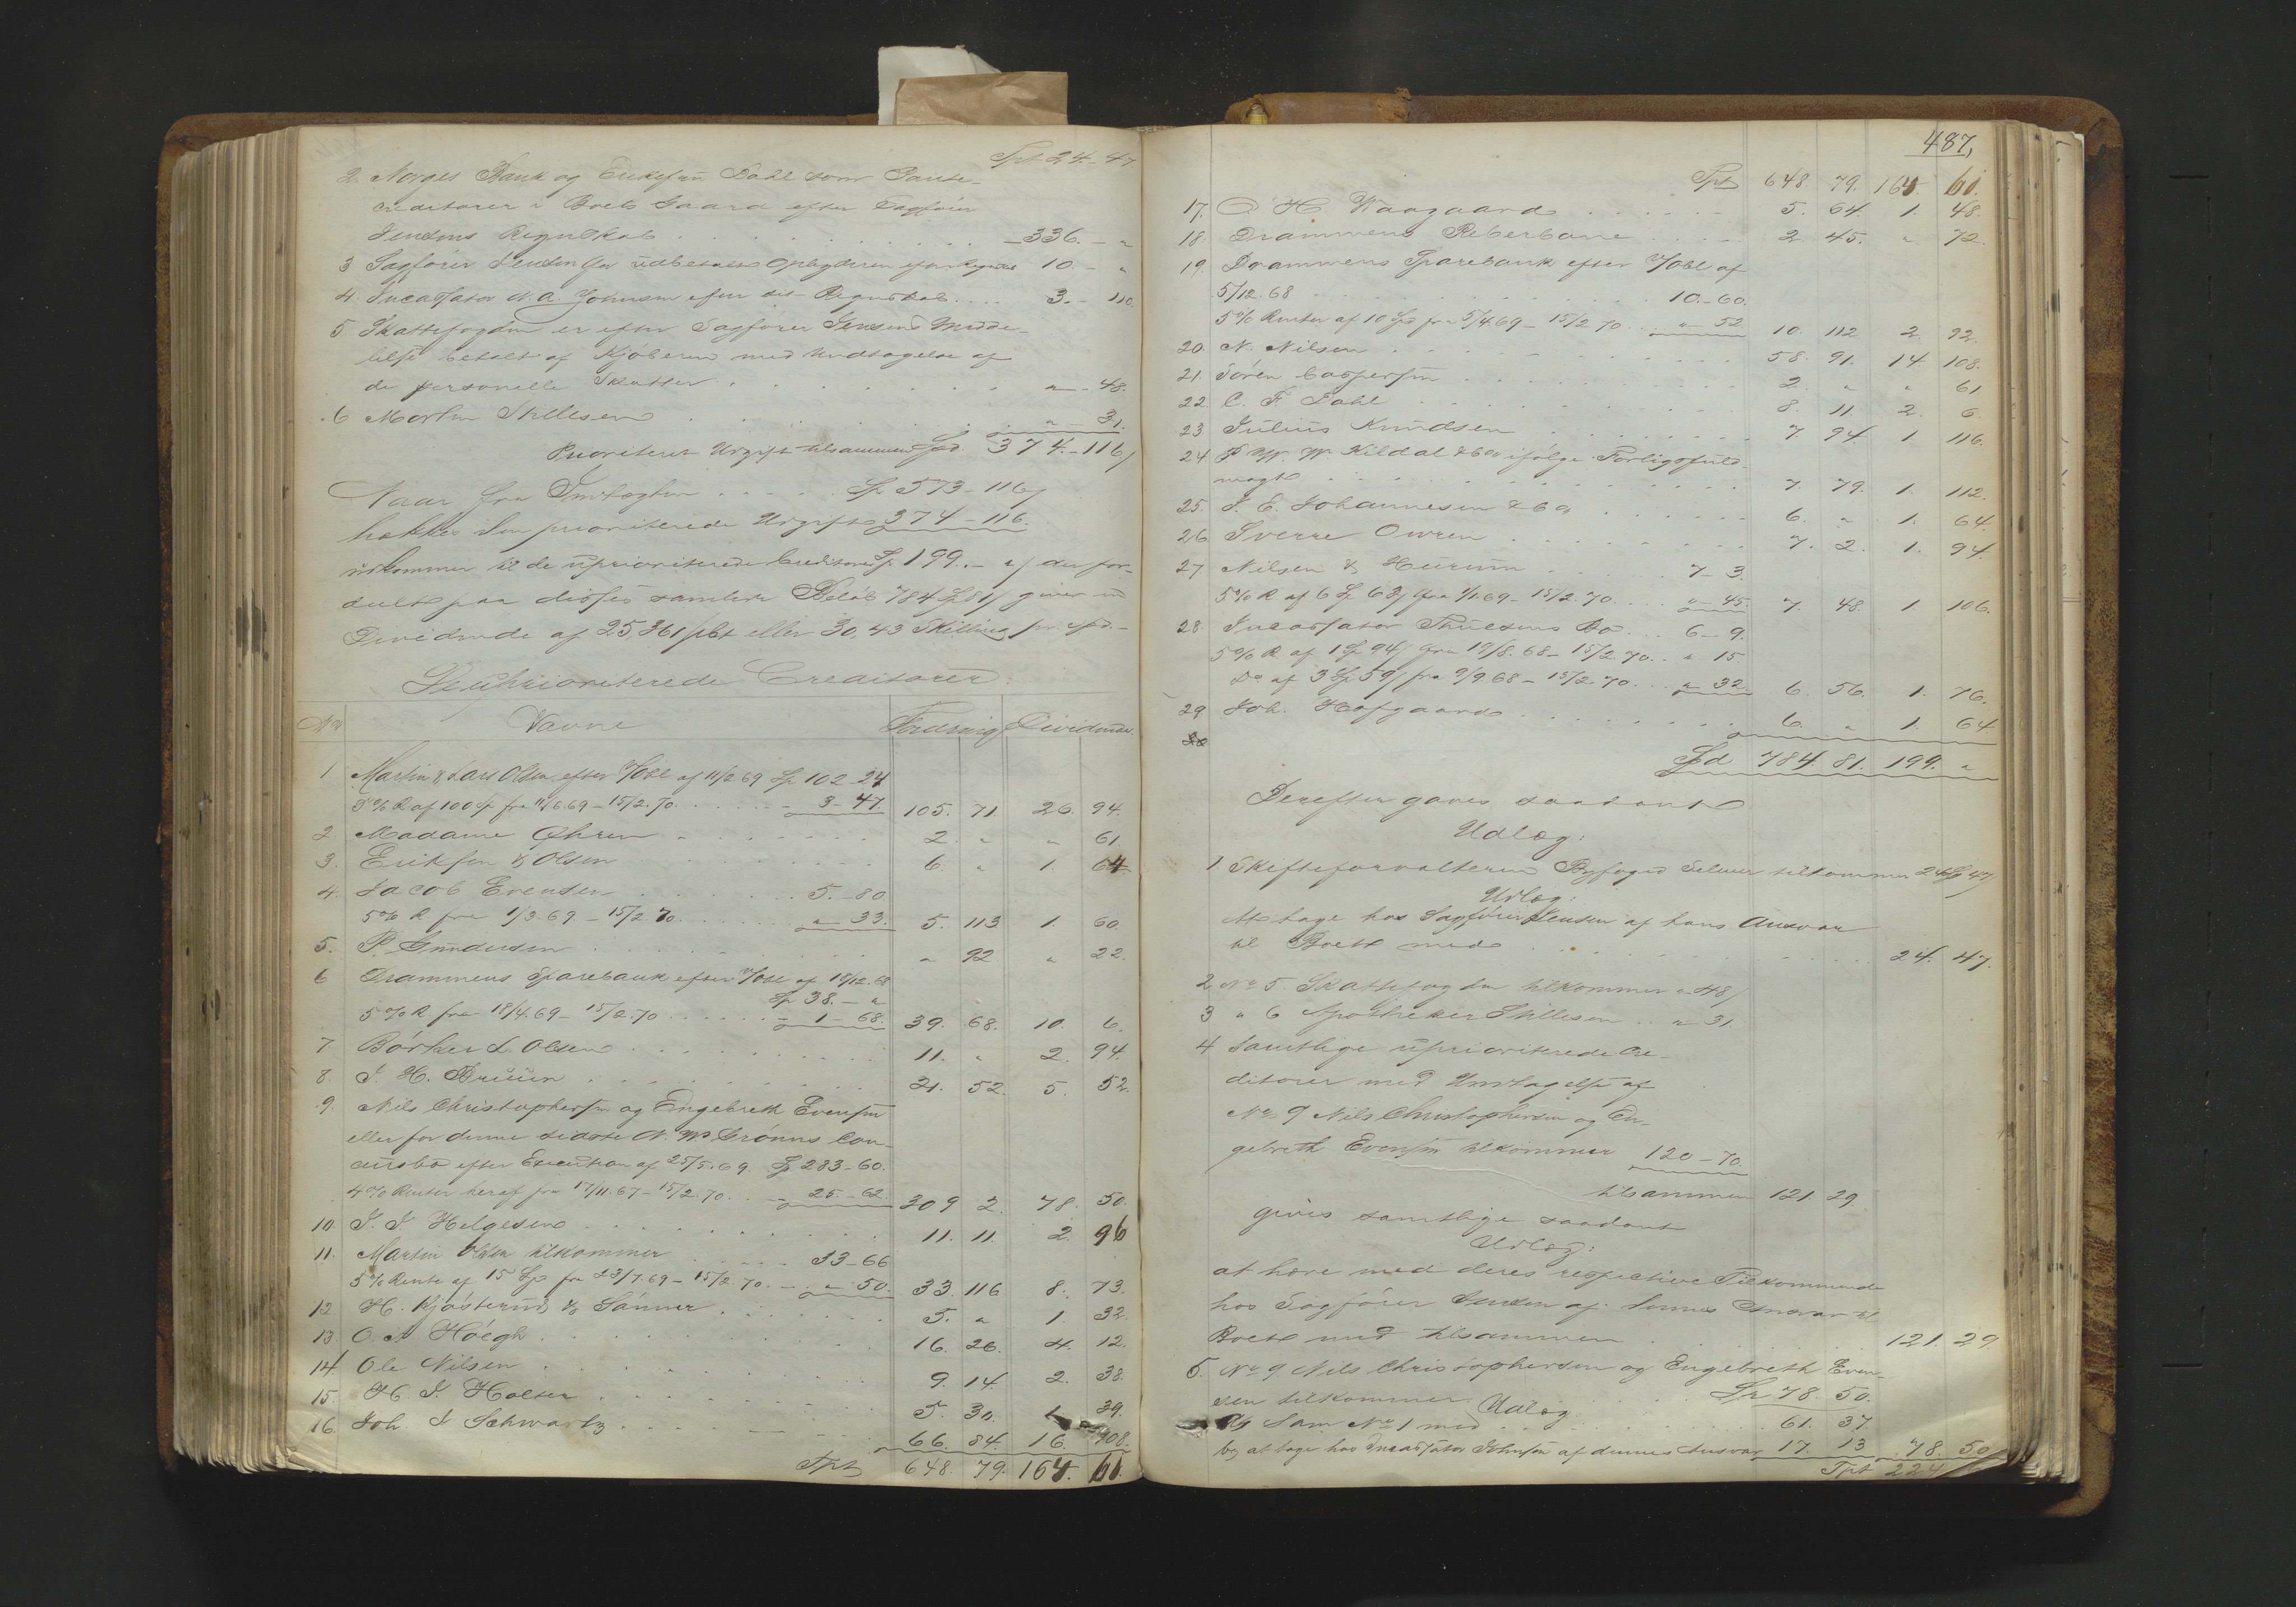 Tpt 24 - 47
2. Norges Bank og Enkefru Dahl som Pante-
creditorer i Boets Gaard efter Sagfører
Jensens Regnskab . . . - 336. - "
3 Sagfører Jensen for udbetalte efter Regnskab 10. - "
4. Incassator N. A. Johnsen efter sit Regnskab . . . 3. - 110.
5 Skattefogden er efter Sagfører Jensens Medde-
lelse betalt af Kjøberen med Undtagelse af
de personelle Skatter . . . " - 48.
6 Morten Stillesen . . . " - 31.
Prioriteret Udgift tilsammen Spd. 374. - 116/
Naar fra Indtægten . . . Sp 573 - 116/
trækkes den prioriterede Udgift 374 - 116.
udkommer til de uprioriterede Creditorer Sp 199. - "/ der for-
delt paa disses samlede Beløb 784 Sp 81/ giver en
Dividende af 25,361 pCt eller 30,43 Skilling pr. Spd. -
De uprioriterede Creditorer:
No Navne Fordring Dividende.
1. Martin & Lars Olsen efter Obl af 11/2 69 Sp 102 - 24
5% R af 100 Sp fra 11/6.69 - 15/2.70 . . . - 3 - 47. 105. 71. 26. 94.
2. Madame Øhren . . . 2. " " 61
3. Eriksen & Olsen . . . 6. " 1. 64
4. Jacob Evensen . . . 5. - 80
5% R fra 1/3.69 - 15/2 70 . . . " - 33. 5. 113 1. 60.
5. P. Gundersen . . . " 92 " 22.
6 Drammens Sparebank efter Obl af 18/12.68
Sp 38. - "
5% R fra 18/4.69 - 15/2.70 . . . - 1 - 68. 39. 68. 10. 6.
7 Børker L. Olsen . . . 11. " 2. 94.
8. J. H. Bruun . . . 21. 52. 5. 52.
9. Nils Christophersen og Engebreth Evensen
eller for denne sidste N. Grønns Con-
cursbo efter Execution af 25/5.69. Sp 283 - 60.
4% Renter heraf fra 17/11.67 - 15/2.70 . . - 25 - 62. 309 2. 78. 50.
10. J. J. Helgesen . . . 11. 11. 2. 96
11. Martin Olsen tilkommer . . . 33 - 66
5% Rente af 15 Sp fra 23/7.69 - 15/2.70. - " - 50. 33. 116 8. 73.
12 H. Kjøsterud & Sønner . . . 5. " 1. 32.
13. O. A Høegh . . . 16. 26. 4. 12.
14 Ole Nilsen . . . 9. 14 2. 38.
15. H. J. Holter . . . 5. 30. 1. 39.
16. Joh. J Schwartz . . . 66. 84. 16. 108.
Tpt 648. 79. 164. 61.
487,
Tpt 648. 79. 164 61.
17. O H Waagaard . . . 5. 64. 1. 48.
18. Drammens Reberbane . . . 2. 45. " 72.
19. Drammens Sparebank efter Obl af
5/12.68 . . . 10. - 60.
5% Renter af 10 Sp fra 5/4.69 - 15/2 70. . . " - 52. 10. 112 2. 92.
20. N. Nilsen . . . 58. 91. 14. 108.
21. Søren Caspersen . . . 2. " " 61
22. C. F. Dahl . . . 8. 11. 2. 6.
23 Julius Knudsen . . . 7. 94. 1 116.
24 P. W. W. Kildal & Co ifølge Forligsfuld-
magt . . . 7. 79. 1. 112.
25. J. E. Johannesen & Co . . . 6. " 1. 64.
26 Sverre Owren . . . 7. 2. 1. 94
27 Nilsen & Heurum . . . 7 - 3.
5% R af 6 Sp 63/ fra 1/1.69 - 15/2.70. . . " - 45. 7. 48. 1. 106.
28 Incassator Thulesens Bo . . . 6 - 9.
5% R af 1 Sp 94/ fra 19/8.68 - 15/2.70. . " 15
Do af 3 Sp 59/ fra 9/9.68 - 15/2.70. . . " 32. 6. 56. 1. 76.
29 Joh. Hofgaard . . . 6. " 1. 64
30
Spd 784. 81. 199. "
Derefter gaves saadant
Udlæg:
1 Skifteforvalteren Byfoged Selmer tilkommer 24 Sp 47/
Udlæg:
At tage hos Sagfører Jensen af hans Ansvar
til Boet med . . . 24. 47.
2 No 5. Skattefogden tilkommer " 48/
3 " 6 Apotheker Stillesen . . " 31.
4 Samtlige uprioriterede Cre-
ditorer med Undtagelse af
No 9 Nils Christophersen og En-
gebreth Evensen tilkommer 120 - 70.
tilsammen 121 29
gives samtlige saadant
Udlæg:
at hæve med deres respective Tilkommende
hos Sagfører Jensen af dennes Ansvar til
Boet med tilsammen . . . 121. 29
5. No 9. Nils Christophersen og Engebreth Even-
sen tilkommer . . . Sp 78. 50.
Udlæg
a/ Sam No 1 med . . . 61. 37
b/ at tage hos Incassator Johnsen af dennes Ansvar 17. 13 78. 50
Tpt 224